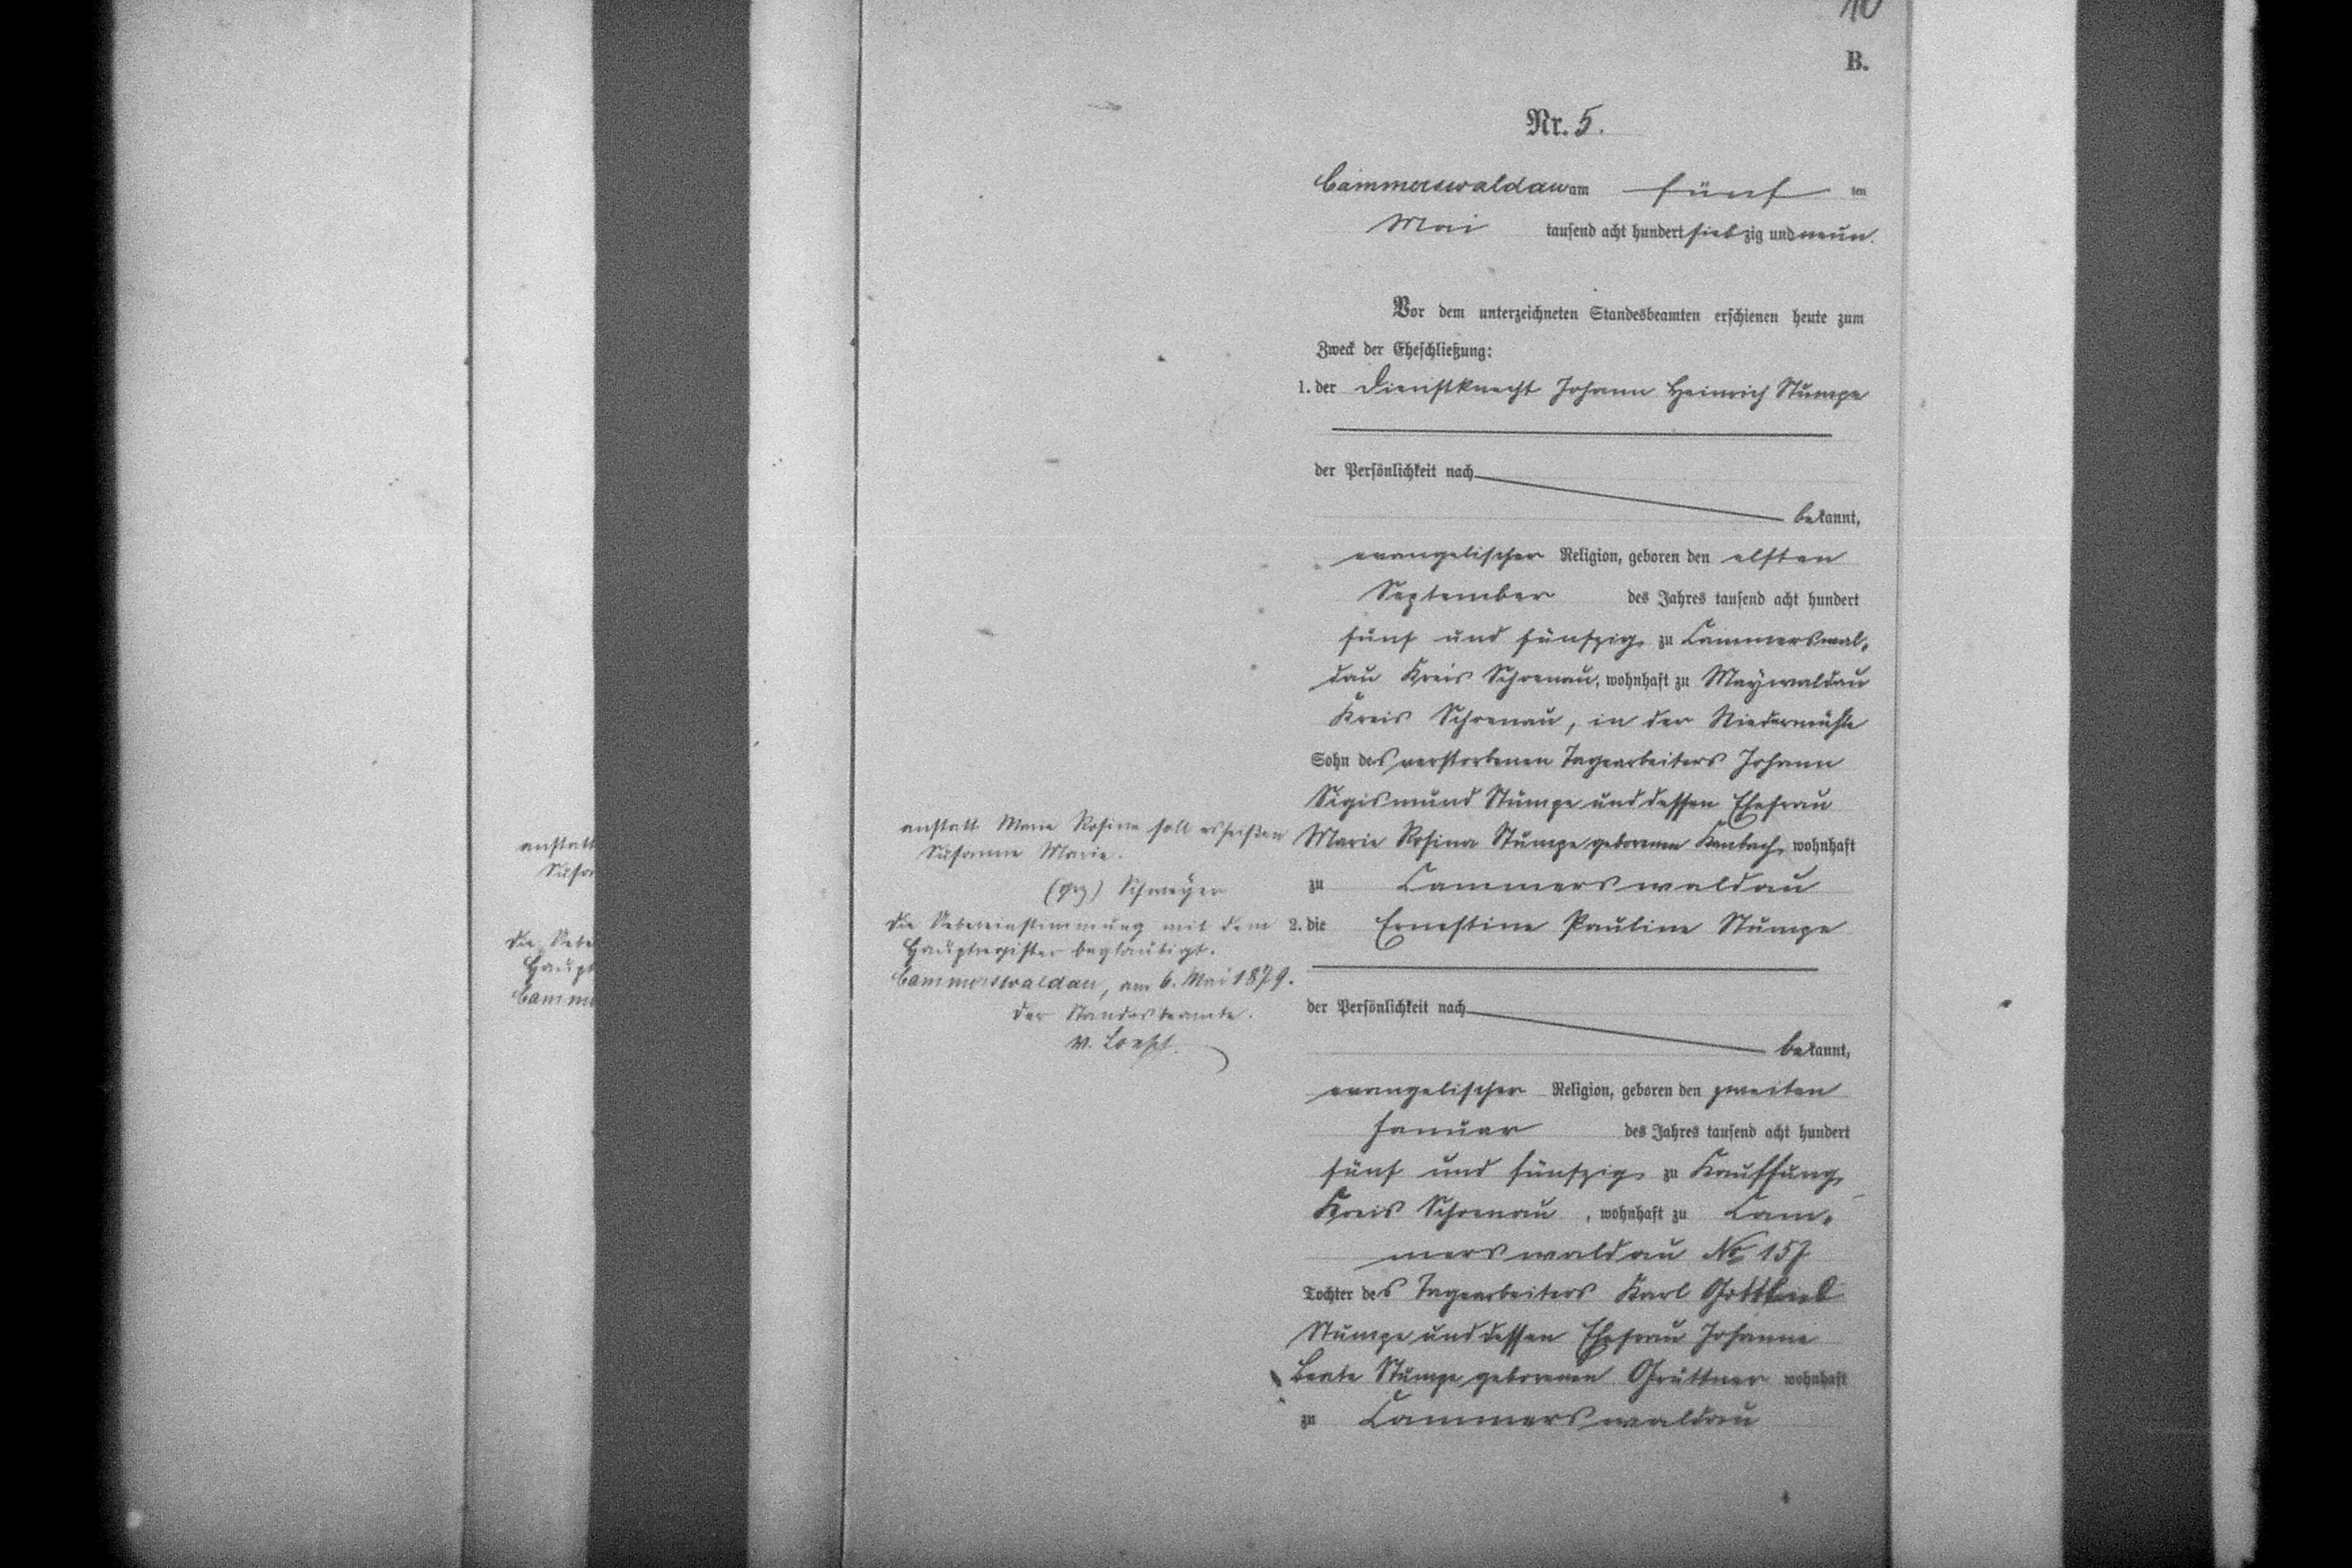 10
B.
Nr. 5.
Cammerswaldau am fünf ten
Mai tausend acht hundert siebzig und neun.
Vor dem unterzeichneten Standesbeamten erschienen heute zum
Zweck der Eheschließung:
1. der Dienstknecht Johann Heinrich Stumpe
der Persönlichkeit nach
bekannt,
evangelischer Religion, geboren den elften
September des Jahres tausend acht hundert
fünf und fünfzig zu Cammerswal-
dau Kreis Schoenau, wohnhaft zu Maywaldau
Kreis Schoenau, in der Niedermühle
Sohn des verstorbenen Tagearbeiters Johann
Sigismund Stumpe und dessen Ehefrau
Marie Rosina Stumpe geborenen wohnhaft
zu Cammerswaldau
2. die Ernestine Pauline Stumpe
der Persönlichkeit nach
bekannt,
evangelischer Religion, geboren den zweiten
Januar des Jahres tausend acht hundert
fünf und fünfzig zu Kauffung
Kreis Schoenau, wohnhaft zu Cam-
merswaldau No 157
Tochter des Tagearbeiters Karl Gottlieb
Stumpe und dessen Ehefrau Johanne
Beate Stumpe geborenen Grüttner wohnhaft
zu Cammerswaldau
anstatt Marie Rosine soll es heißen
Susanne Marie.
(gez) Schweyer
Die Uebereinstimmung mit dem
Hauptregister beglaubigt.
Cammerswaldau, am 6. Mai 1879.
Der Standesbeamte.
v. Loesch.
anstatt
Susan
Die Uebe
Haupt
Camme